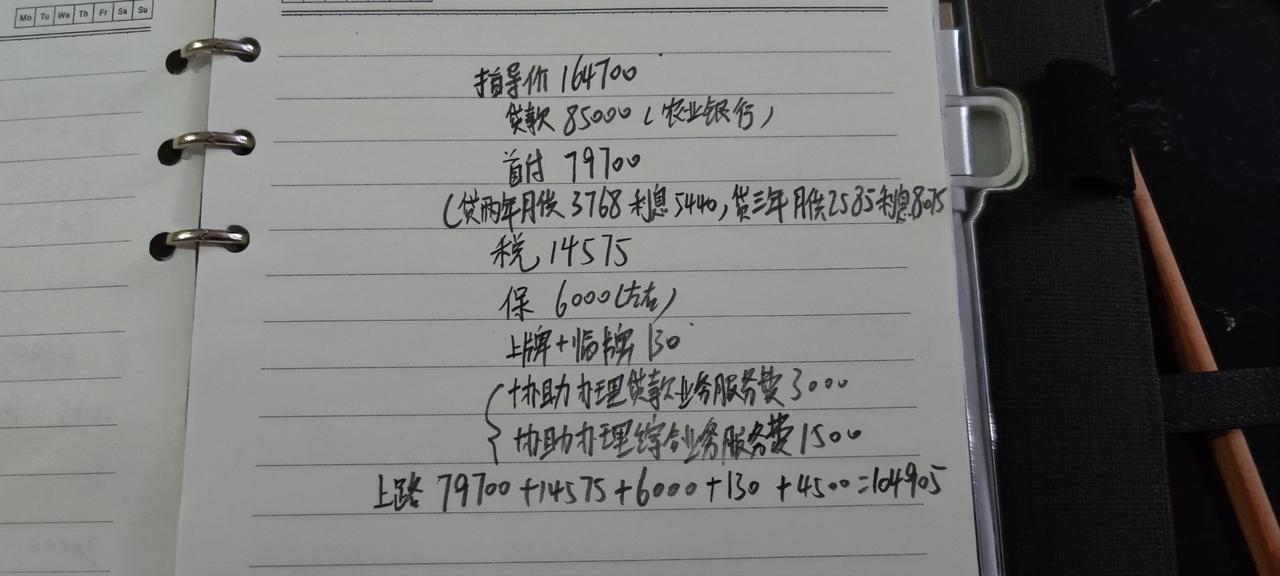 Mo Tu We Th Fr Sa Su
指导价 164700
贷款 85000(农业银行)
首付 79700
(贷两年月供 3768 利息 5440, 贷三年月供 2585 利息 8075
税 14575
保 6000(左右)
上牌+临牌 130
协助办理贷款业务服务费 3000
协助办理综合业务服务费 1500
上路 79700+14575+6000+130+4500=104905